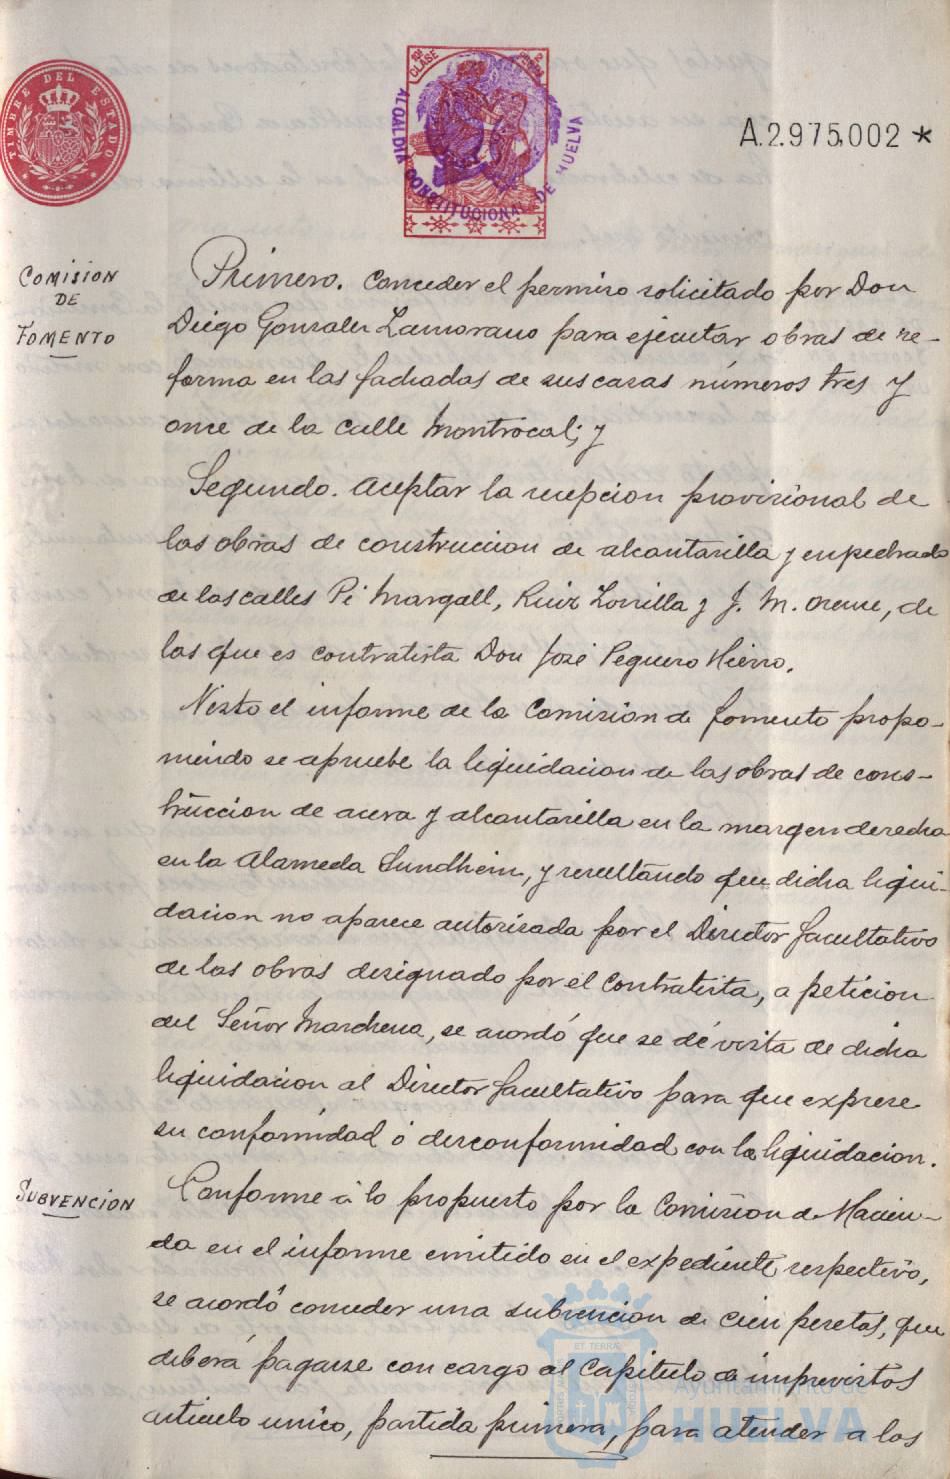 TIMBRE DEL ESTADO
10ª CLASE
ALCALDIA CONSTITUCIONAL DE HUELVA
A.2.975,002 *
COMISION
DE
FOMENTO
Primero. Conceder el permiso solicitado por Don
Diego Gonzalez Zamorano para ejecutar obras de re-
forma en las fachadas de sus casas números tres y
once de la calle Montrocal; y
Segundo. Aceptar la recepcion provisional de
las obras de construccion de alcantarilla y enpedrado
de las calles Pi Margall, Ruiz Zorrilla y J. M. Orense, de
las que es contratista Don José Peguero Hierro.
Visto el informe de la Comision de fomento propo-
niendo se apruebe la liquidacion de las obras de cons-
truccion de acera y alcantarilla en la margen derecha
en la Alameda Sundheim, y resultando que dicha liqui-
dacion no aparece autorisada por el Director facultativo
de las obras designado por el contratista, a peticion
del Señor Marchena, se acordó que se dé vista de dicha
liquidacion al Director facultativo para que exprese
su conformidad o disconformidad con la liquidacion.
SUBVENCION
Conforme a lo propuesto por la Comision de Hacien-
da en el informe emitido en el expediente respectivo,
se acordó conceder una subvencion de cien pesetas, que
deberá pagarse con cargo al Capitulo de imprevistos
articulo unico, partida primera, para atender a los
ET TERRA
Ayuntamiento de
HUELVA